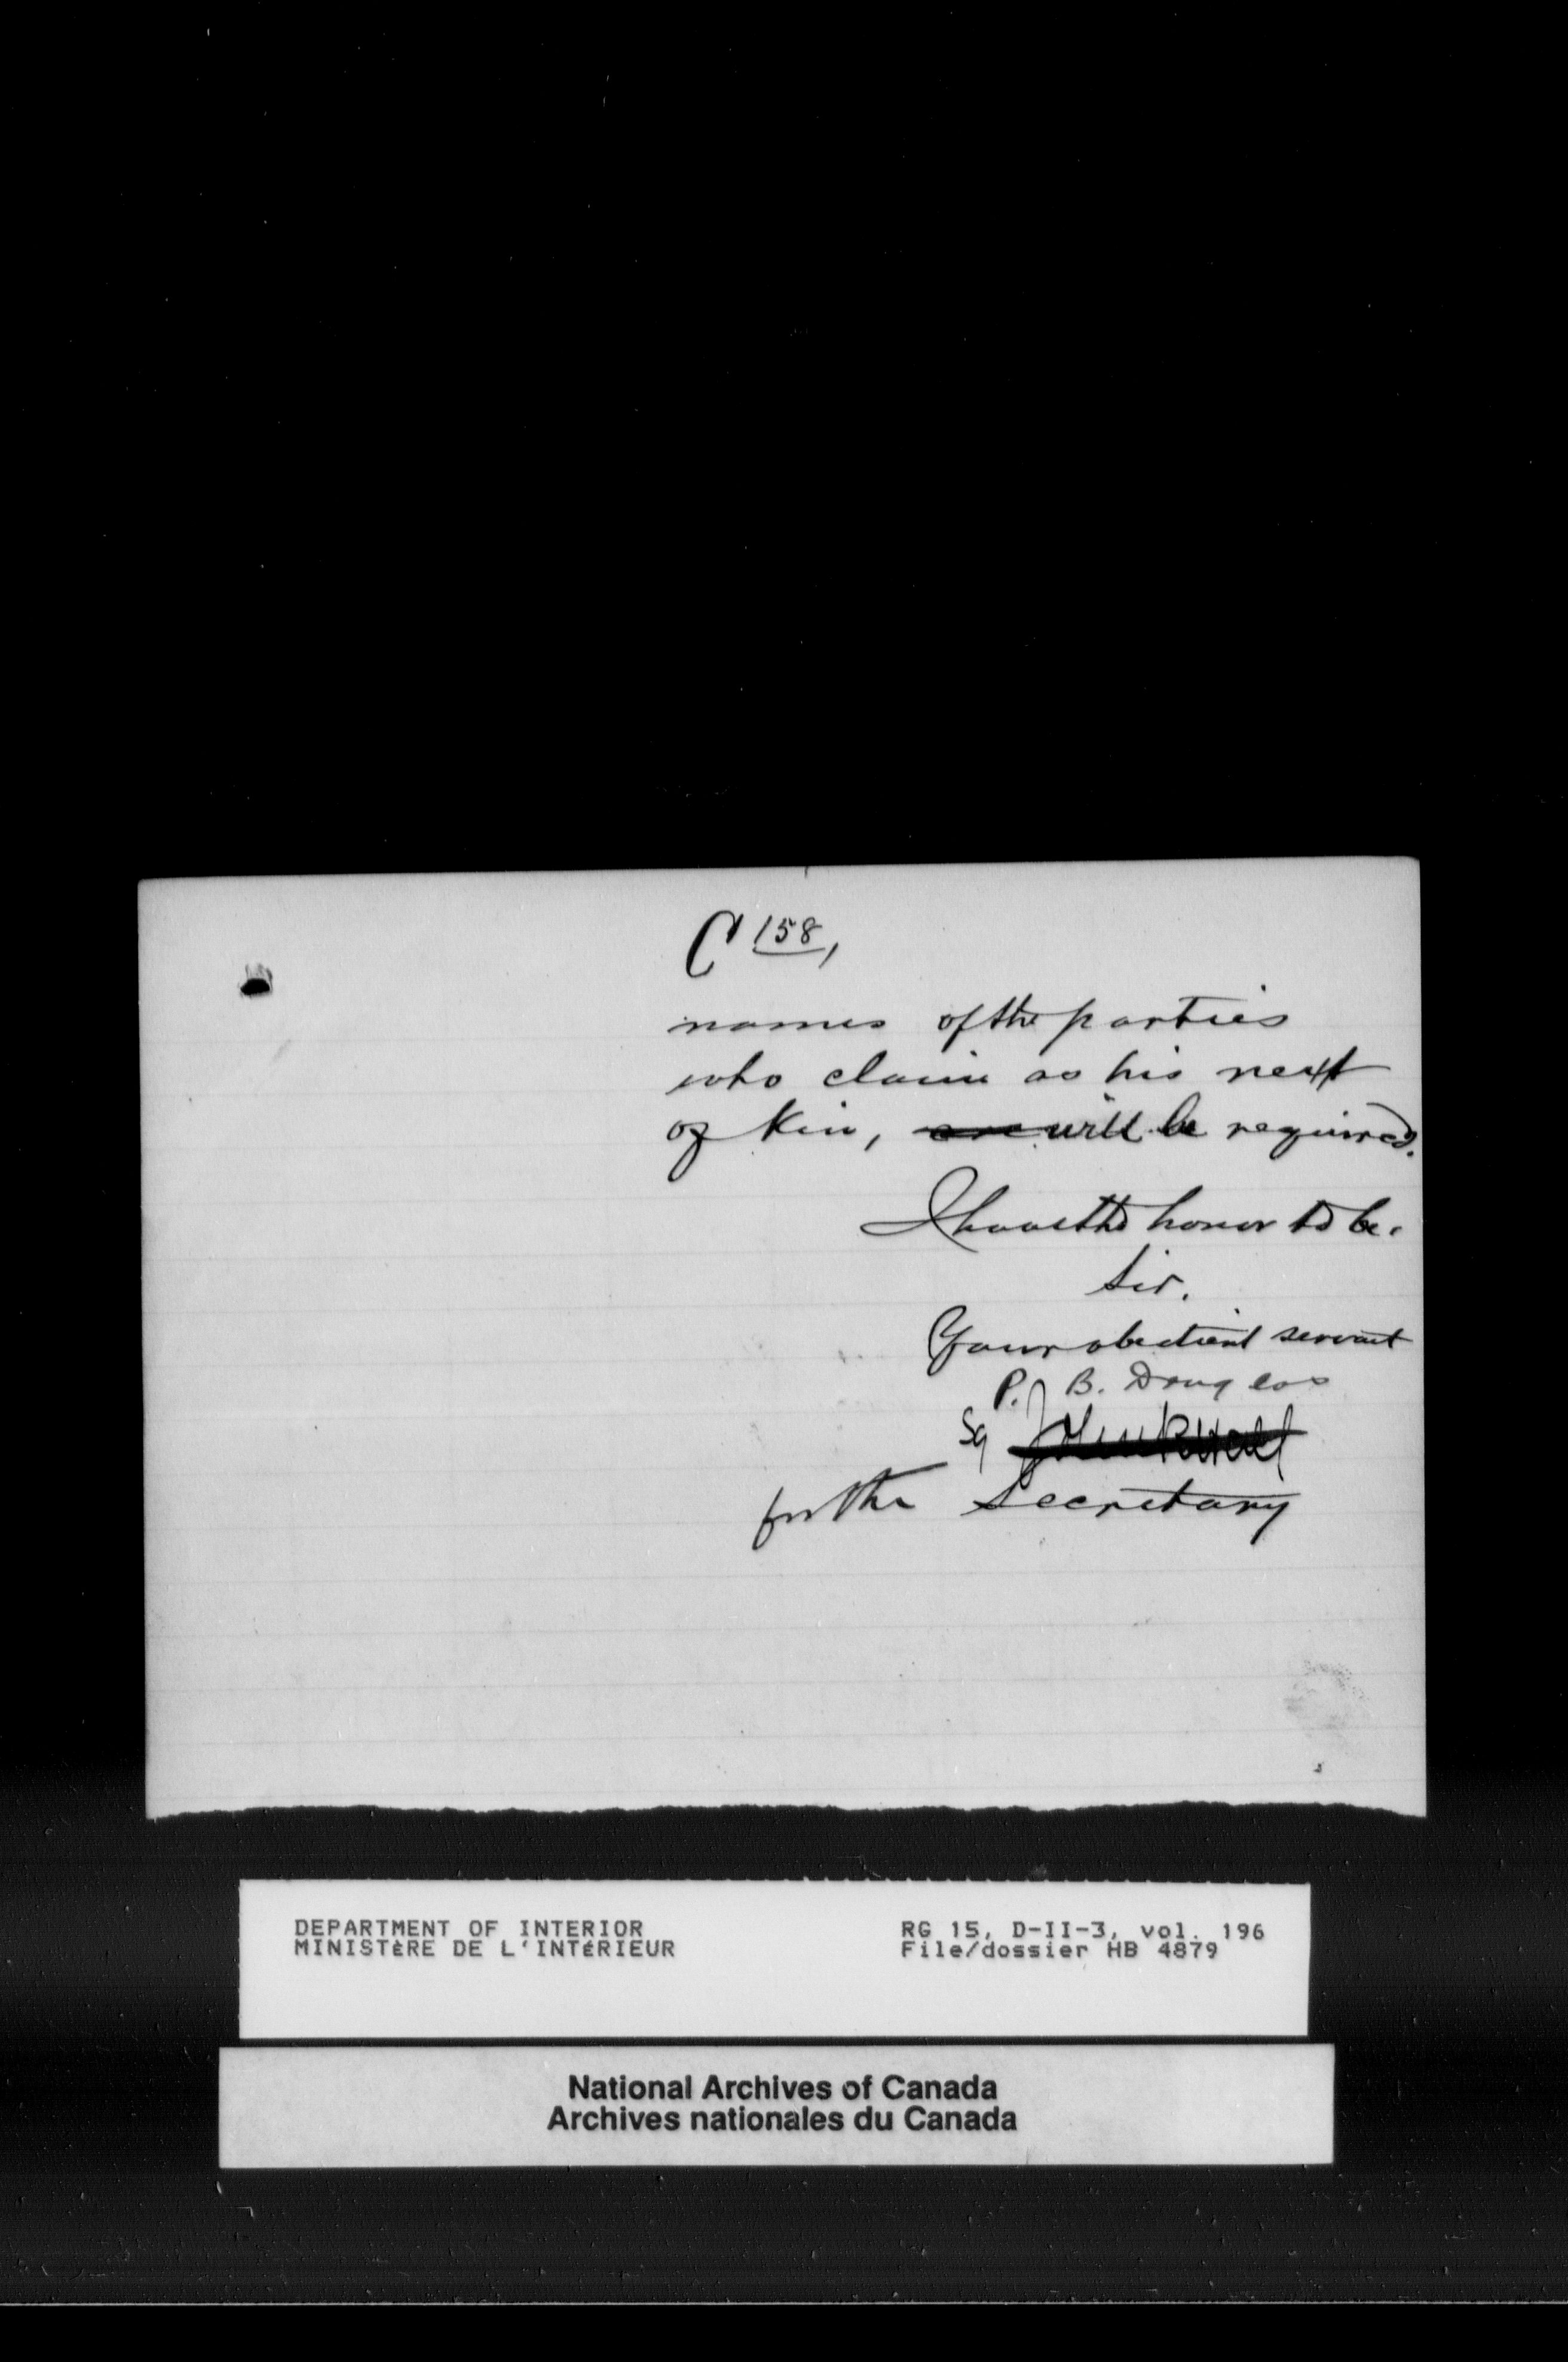 C 158,
names of the parties
who claim as his next
of Kin, are will be required.
I have the honor to be.
Sir.
Your obedient servant
P. B. Douglas
Sg John R Hall
for the Secretary
DEPARTMENT OF INTERIOR
MINISTÈRE DE L'INTÉRIEUR
RG 15, D-II-3, vol. 196
File/dossier HB 4879
National Archives of Canada
Archives nationales du Canada